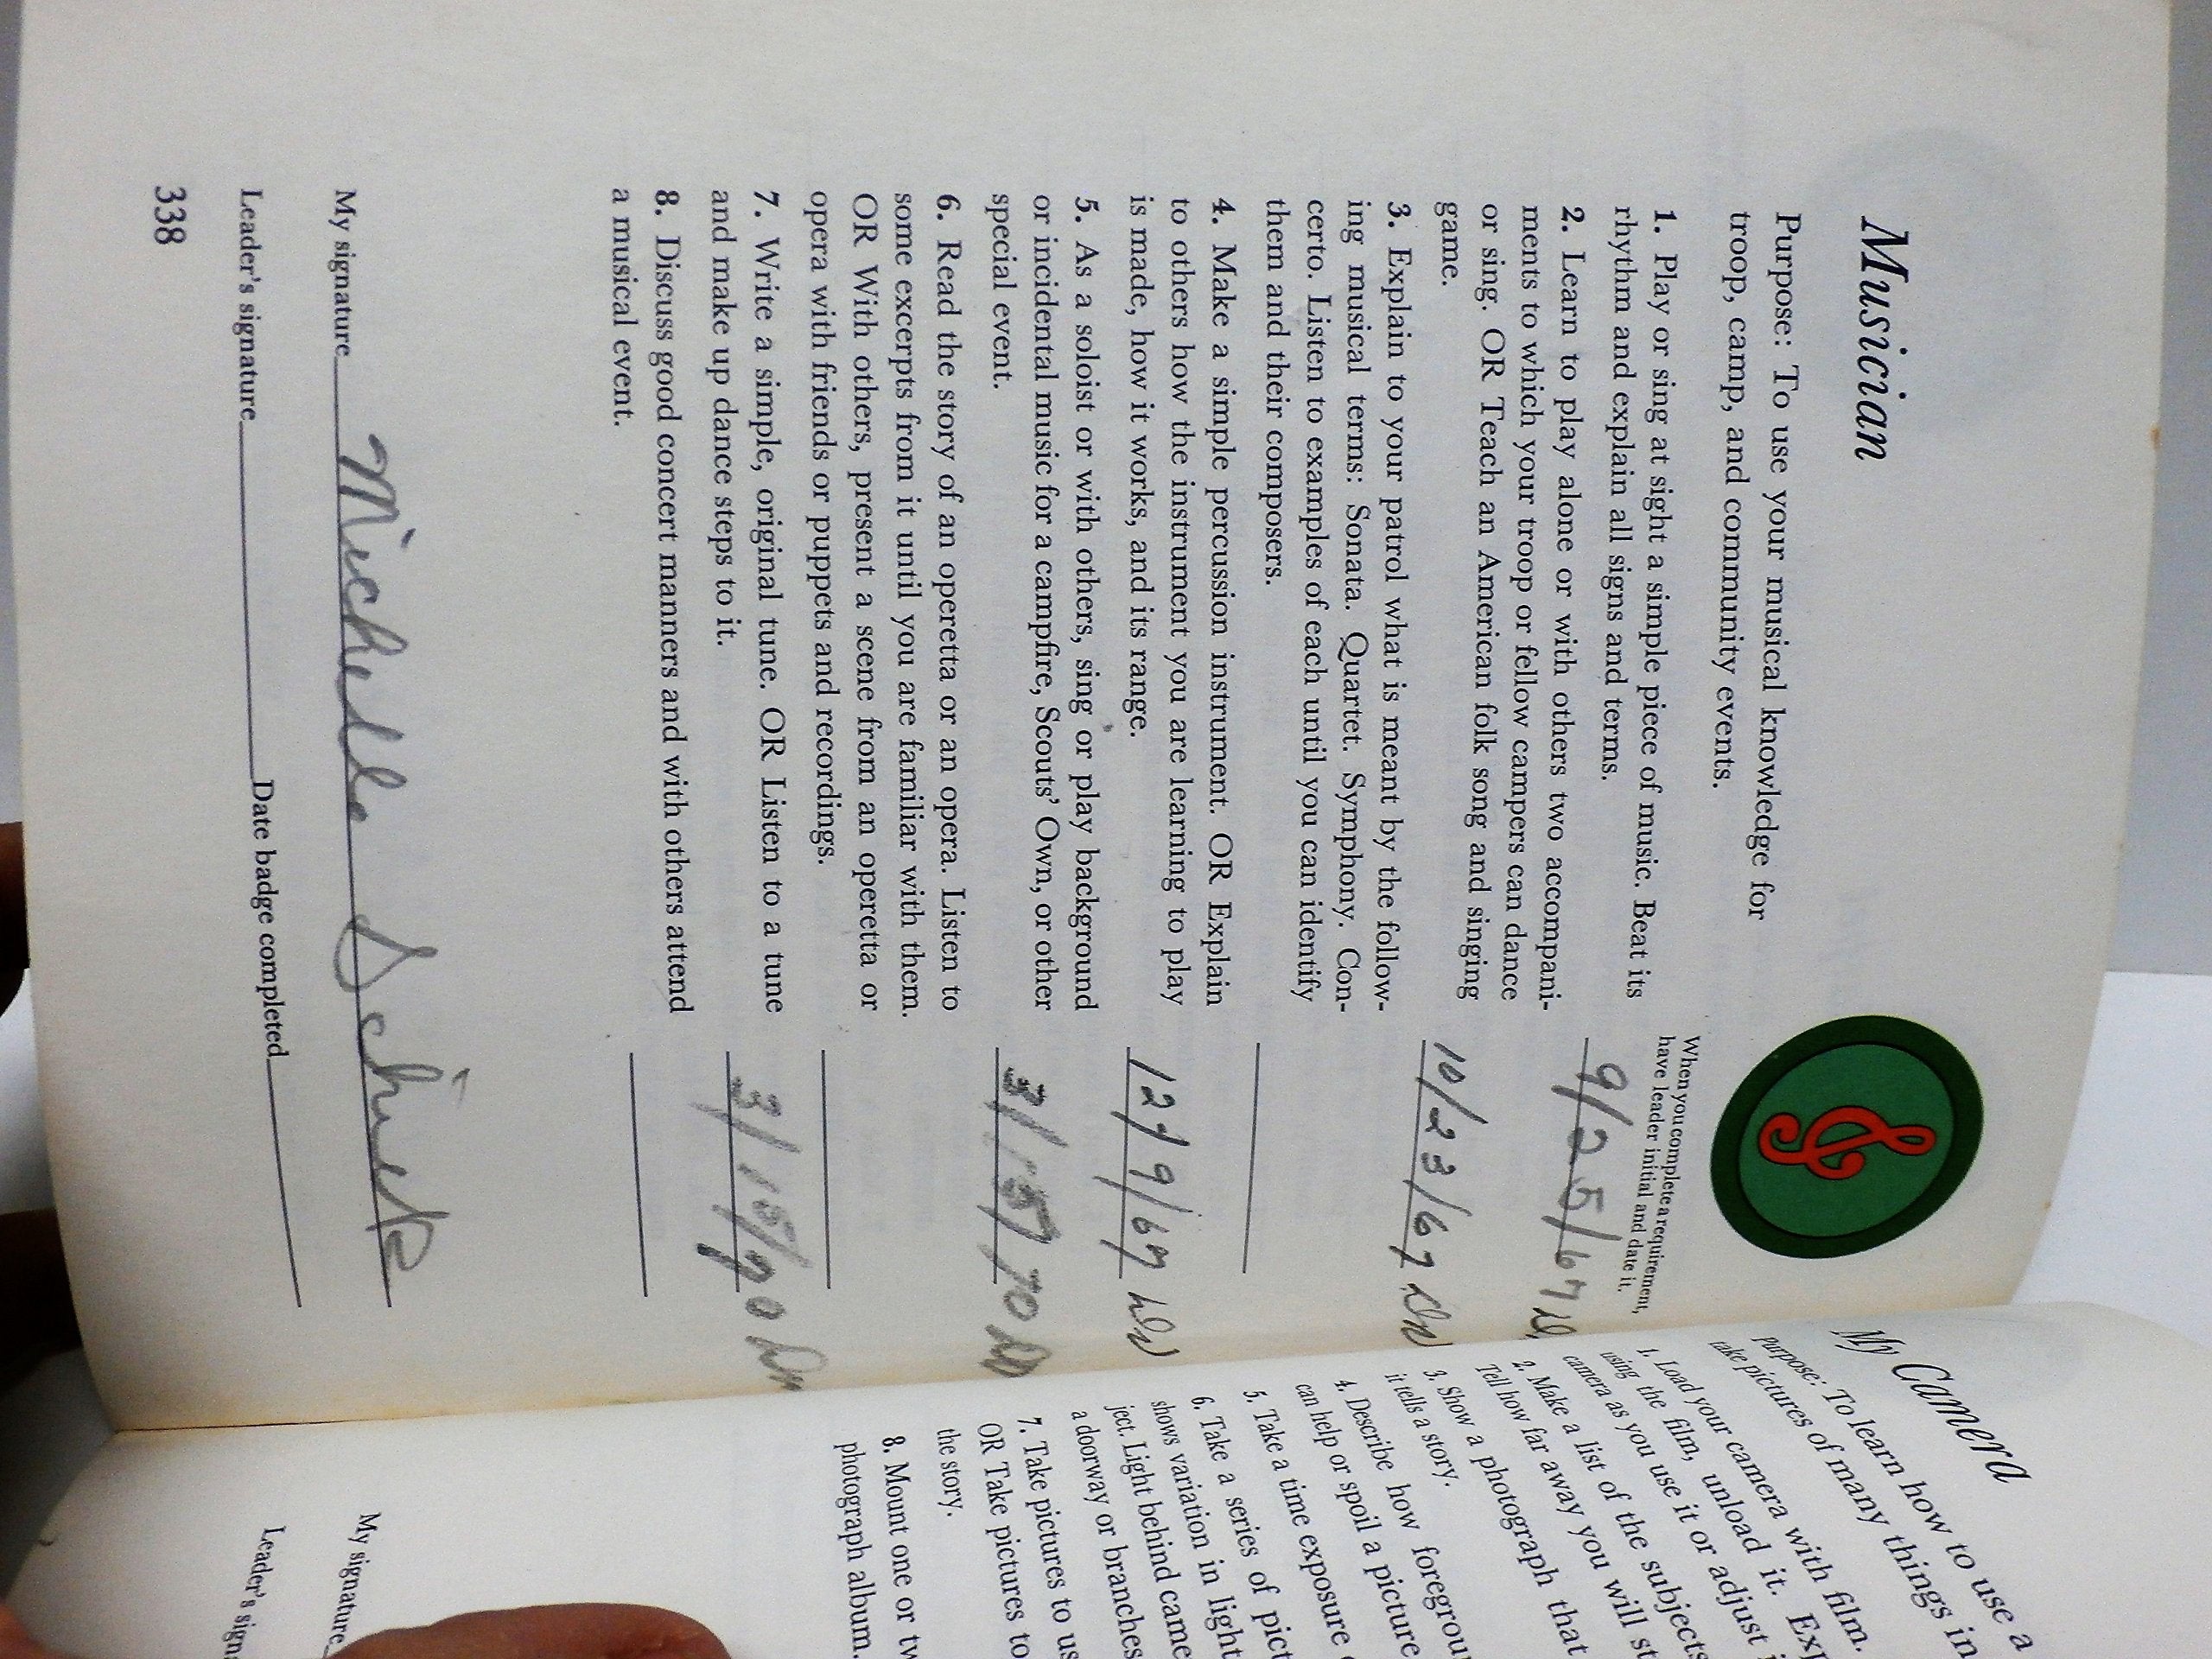 Musician
Purpose: To use your musical knowledge for
troop, camp, and community events.
When you complete a requirement,
have leader initial and date it.
1. Play or sing at sight a simple piece of music. Beat its
rhythm and explain all signs and terms.
9/25/67
2. Learn to play alone or with others two accompani-
ments to which your troop or fellow campers can dance
or sing. OR Teach an American folk song and singing
game.
10/23/67
3. Explain to your patrol what is meant by the follow-
ing musical terms: Sonata. Quartet. Symphony. Con-
certo. Listen to examples of each until you can identify
them and their composers.
4. Make a simple percussion instrument. OR Explain
to others how the instrument you are learning to play
is made, how it works, and its range.
12/9/67
5. As a soloist or with others, sing or play background
or incidental music for a campfire, Scouts' Own, or other
special event.
6. Read the story of an operetta or an opera. Listen to
some excerpts from it until you are familiar with them.
OR With others, present a scene from an operetta or
opera with friends or puppets and recordings.
7. Write a simple, original tune. OR Listen to a tune
and make up dance steps to it.
8. Discuss good concert manners and with others attend
a musical event.
My signature Michelle
Leader's signature Date badge completed
338
My Camera
Purpose: To learn how to use a
take pictures of many things in
1. Load your camera with film.
using the film, unload it. Exp
camera as you use it or adjust i
2. Make a list of the subjects
Tell how far away you will st
3. Show a photograph that
it tells a story.
4. Describe how foregrou
can help or spoil a picture
5. Take a time exposure
6. Take a series of pict
shows variation in light
ject. Light behind came
a doorway or branches
7. Take pictures to us
OR Take pictures to
the story.
8. Mount one or tw
photograph album.
My signature
Leader's sign